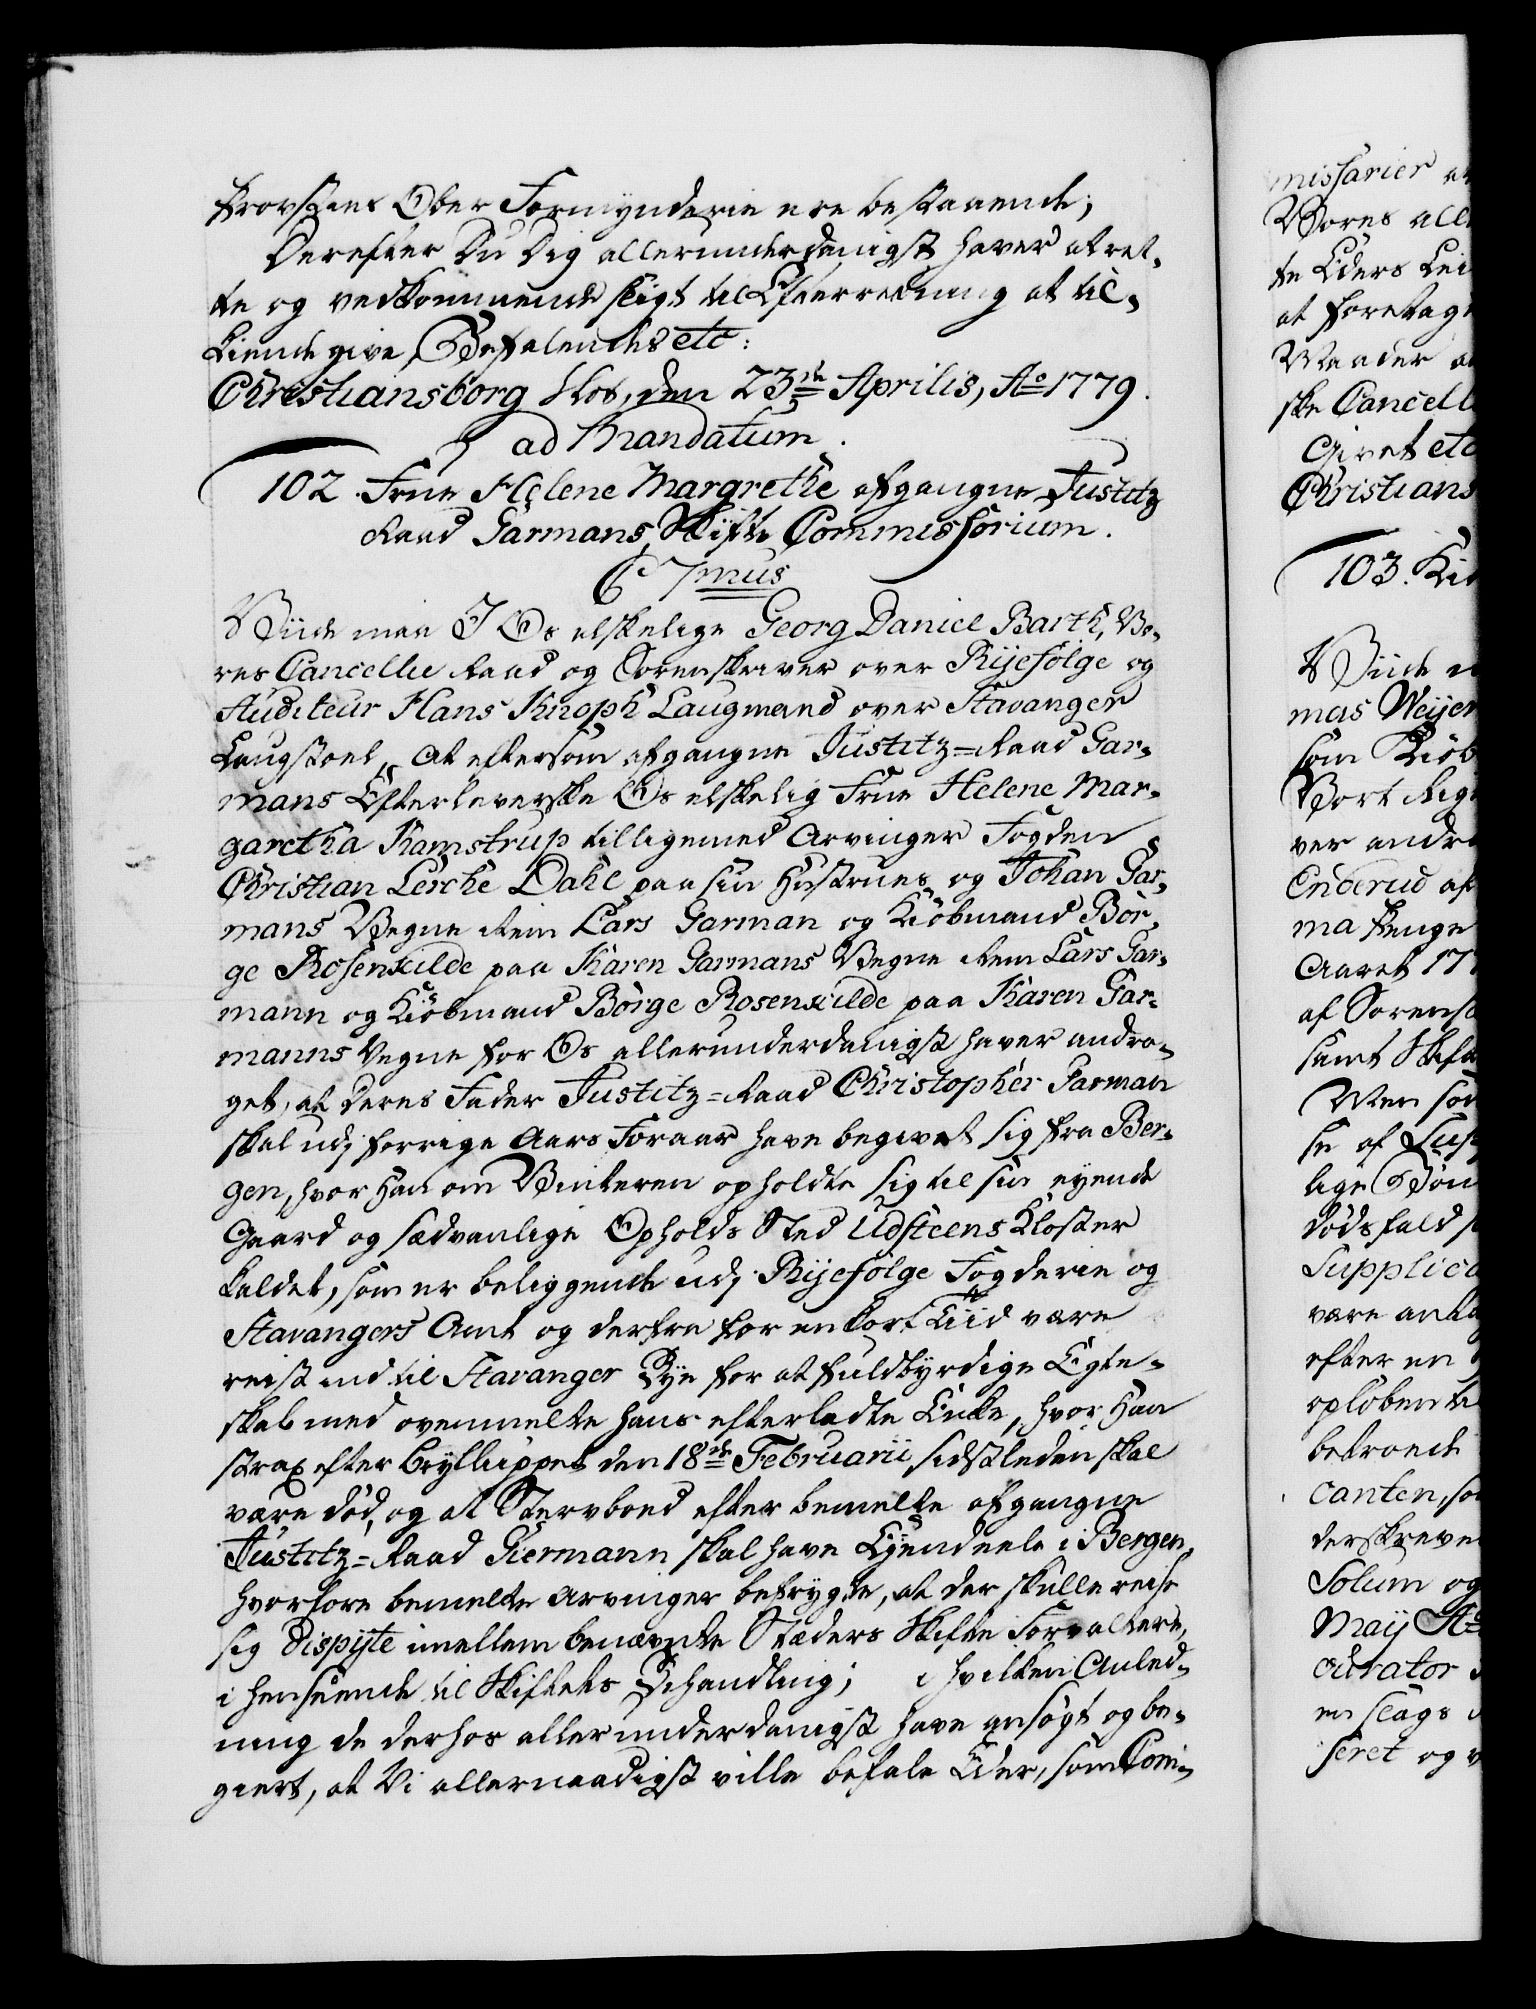 Provstens Ober Formynderie ere bestaaende;
Derefter Du Dig allerunderdanigst haver at ret-
te og vedkommende sligt til Efterretning at til-
kiende give, Befalendes etc:
Christiansborg Slot, den 23de Aprilis, Ao 1779.
ad Mandatum.
102. Frue Helene Margrethe afgangne Justitz
Raad Garmans, Skifte Commissorium.
C 7mus
Viide maa I Os elskelige Georg Daniel Barth, Vo-
res Cancellie Raad og Sorenskriver over Rijefölge og
Auditeur Hans Knoph Laugmand over Stavanger
Laugstoel, At eftersom afgangne Justitz-Raad Gar-
mans Efterleverske Os elskelig Frue Helene Mar-
garetha Kamstrup tilligemed Arvinger Fogden
Christian Lerche Dahl paa sin Hustrues og Johan Gar-
mans Vegne Rein Lars Garman og Kiöbmand Bör-
ge Rosenkilde paa Karen Garmans Vegne Rem Lars Gar-
mann og Kiöbmand Börge Rosenkilde paa Karen Gar-
manns Vegne for Os allerunderdanigst haver andra-
get, at deres Fader Justitz-Raad Christopher Garman
skal udj forrige Aars Foraar have begivet sig fra Ber-
gen, hvor Han om Vinteren opholdte sig til sin eyende
Gaard og sædvanlige Opholds Sted Udsteens Kloster
kaldet, som er beliggende udj Rijefölge Fogderie og
Stavangers Amt og derfra for en kort Tiid være
reist ind til Stavanger Bye for at fuldbyrdige Egte-
skab med ovenmelte hans efterladte Enke, hvor Han
strax efter Bryllupped den 18de Februarii sidstleden skal
være död, og at Stervboed efter bemelte afgangne
Justitz-Raad Giermann skal have Eyendeele i Bergen,
hvorfore bemelte Arvinger befrygte, at der skulle reise
sig Dispyte imellem benævnte Stæders Skifte Forvaltere,
i henseende til Skiftets Behandling; i hvilken Anled-
ning de derhos allerunderdanigst have ansögt og be-
giert, at Vi allernaadigst ville befale Eder, som Com-
missarier
Vores all
te Eders
at foretag
Maader
ske Cancell
Givet etc
Christians
103.
Viide
mas Weijer
som Kiöb
Vort
ver andr
Enderud af
ma Penge
Aaret 17
af Sorens
samt Skif
Men som
se af
lige Bön
dödsfald
Supplica
være anta
efter en
oplöbente
betroede
canten, so
derskreve
Solum og
Maij Ao
curator
en slags
seret og